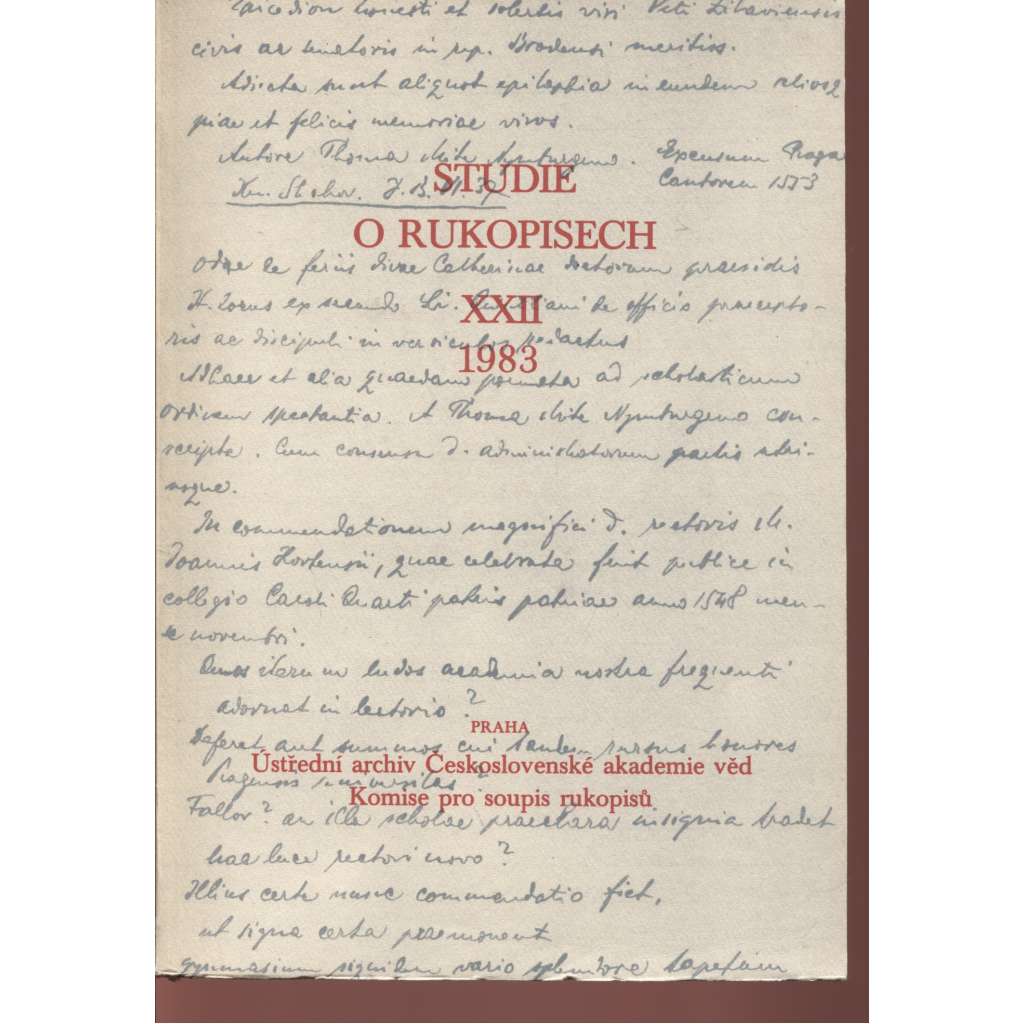 Epicedion honesti et solertis viri Viti Zitaviensis
civis ac senatoris in rep. Brodensi meritiss.
Adiecta sunt aliquot epitaphia in eundem
piae et felicis memoriae viros.
Autore Thoma Mite Nymburgeno. Excusum Pragae
STUDIE
Cantorem 1553
O RUKOPISECH
Odae de feriis divae Catherinae doctorum praesidis
XXII
ex secundo de officio praecepto-
ris ac discipuli in versiculos redactus
1983
Adhaec et alia quaedam poemata ad scholasticum
ordinem spectantia. A Thoma Mite Nymburgeno con-
scripta. Cum consensu d. administratorum partis utri-
usque.
In commendationem magnifici d. rectoris M.
Joannis Hortensii, quae celebrata fuit publice in
collegio Caroli Quarti patris patriae anno 1548 men-
se novembri.
iterum ludos academia nostra frequenti
adornat in lectorio?
PRAHA
Deferat aut summos cui tandem rursus honores
Ústřední archiv Československé akademie věd
Pragensis universitas?
Komise pro soupis rukopisů
Fallor? an illa scholae praeclara insignia tradet
hac luce rectori novo?
Illius certe nunc commendatio fiet,
ut signa certa praemonent
gymnasium vario splendore tapetum